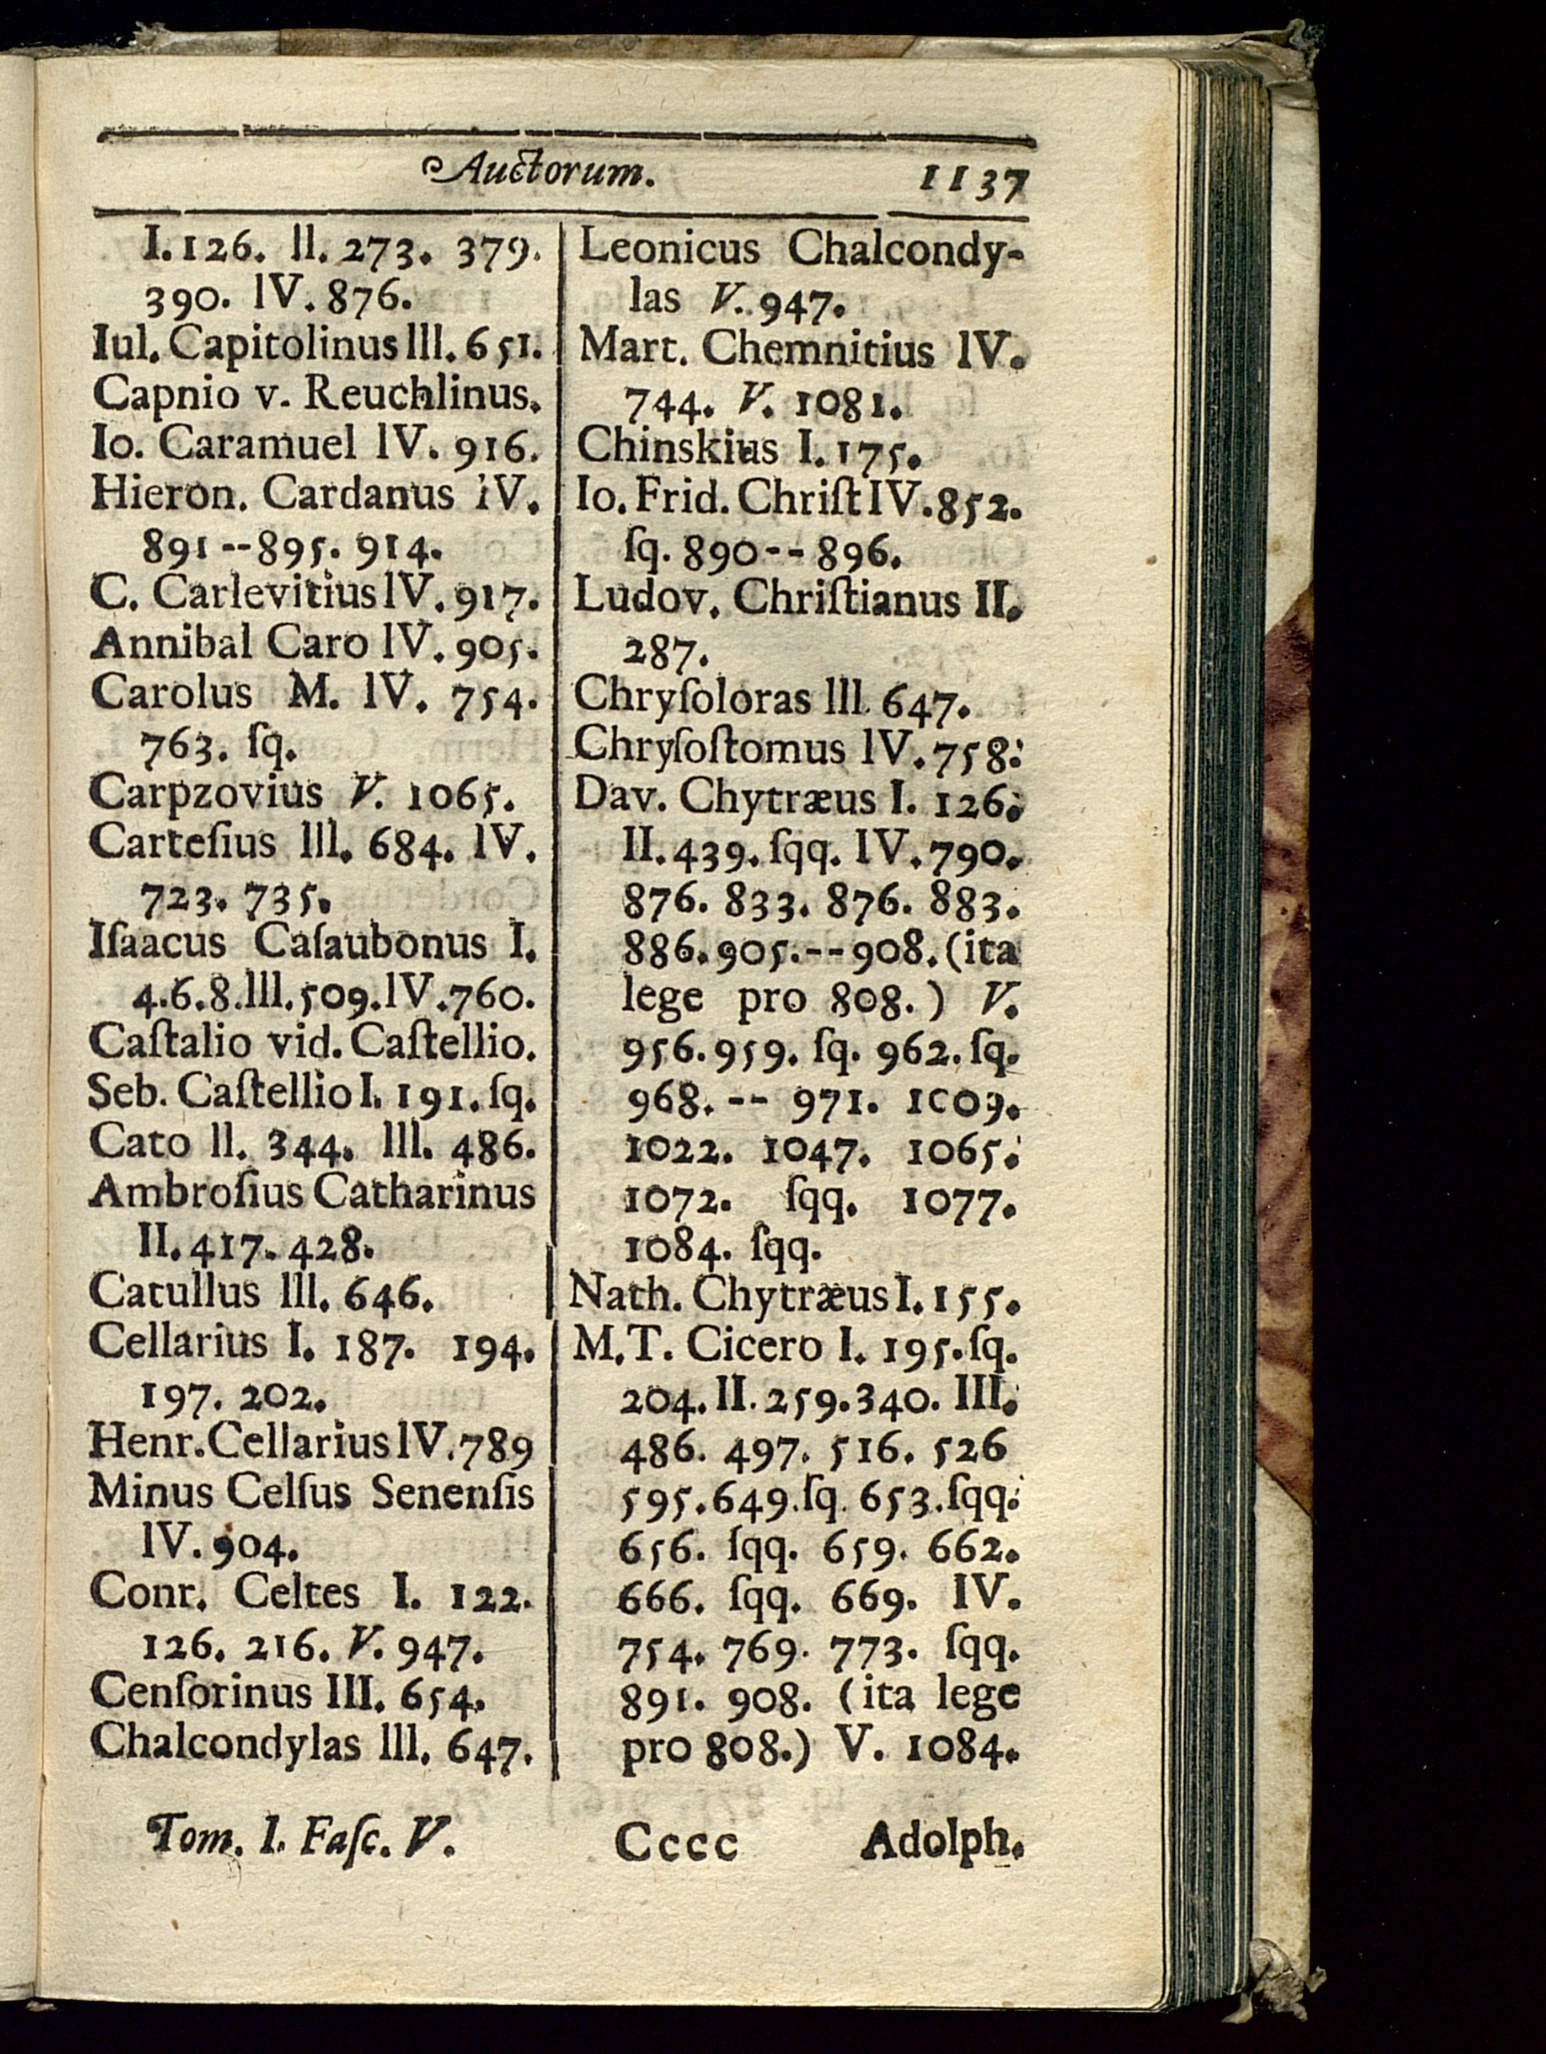 Auctorum. 1137
I. 126. II. 273. 379.
390. IV. 876.
Iul. Capitolinus III. 651.
Capnio v. Reuchlinus.
Io. Caramuel IV. 916.
Hieron. Cardanus IV.
891--895. 914.
C. Carlevitius IV. 917.
Annibal Caro IV. 905.
Carolus M. IV. 754.
763. ſq.
Carpzovius V. 1065.
Carteſius III. 684. IV.
723. 735.
Iſaacus Caſaubonus I.
4.6.8.III.509.IV.760.
Caſtalio vid. Caſtellio.
Seb. Caſtellio I. 191. ſq.
Cato II. 344. III. 486.
Ambroſius Catharinus
II. 417. 428.
Catullus III. 646.
Cellarius I. 187. 194.
197. 202.
Henr. Cellarius IV. 789
Minus Celſus Senenſis
IV. 904.
Conr. Celtes I. 122.
126. 216. V. 947.
Cenſorinus III. 654.
Chalcondylas III. 647.
Leonicus Chalcondy-
las V. 947.
Mart. Chemnitius IV.
744. V. 1081.
Chinskius I. 175.
Io. Frid. Chriſt IV. 852.
ſq. 890--896.
Ludov. Chriſtianus II.
287.
Chryſoloras III. 647.
Chryſoſtomus IV. 758.
Dav. Chytræus I. 126.
II. 439. ſqq. IV. 790.
876. 833. 876. 883.
886. 905.--908. (ita
lege pro 808.) V.
956. 959. ſq. 962. ſq.
968. -- 971. 1009.
1022. 1047. 1065.
1072. ſqq. 1077.
1084. ſqq.
Nath. Chytræus I. 155.
M. T. Cicero I. 195. ſq.
204. II. 259. 340. III.
486. 497. 516. 526
595. 649. ſq. 653. ſqq.
656. ſqq. 659. 662.
666. ſqq. 669. IV.
754. 769. 773. ſqq.
891. 908. (ita lege
pro 808.) V. 1084.
Tom. I. Faſc. V. Cccc Adolph.